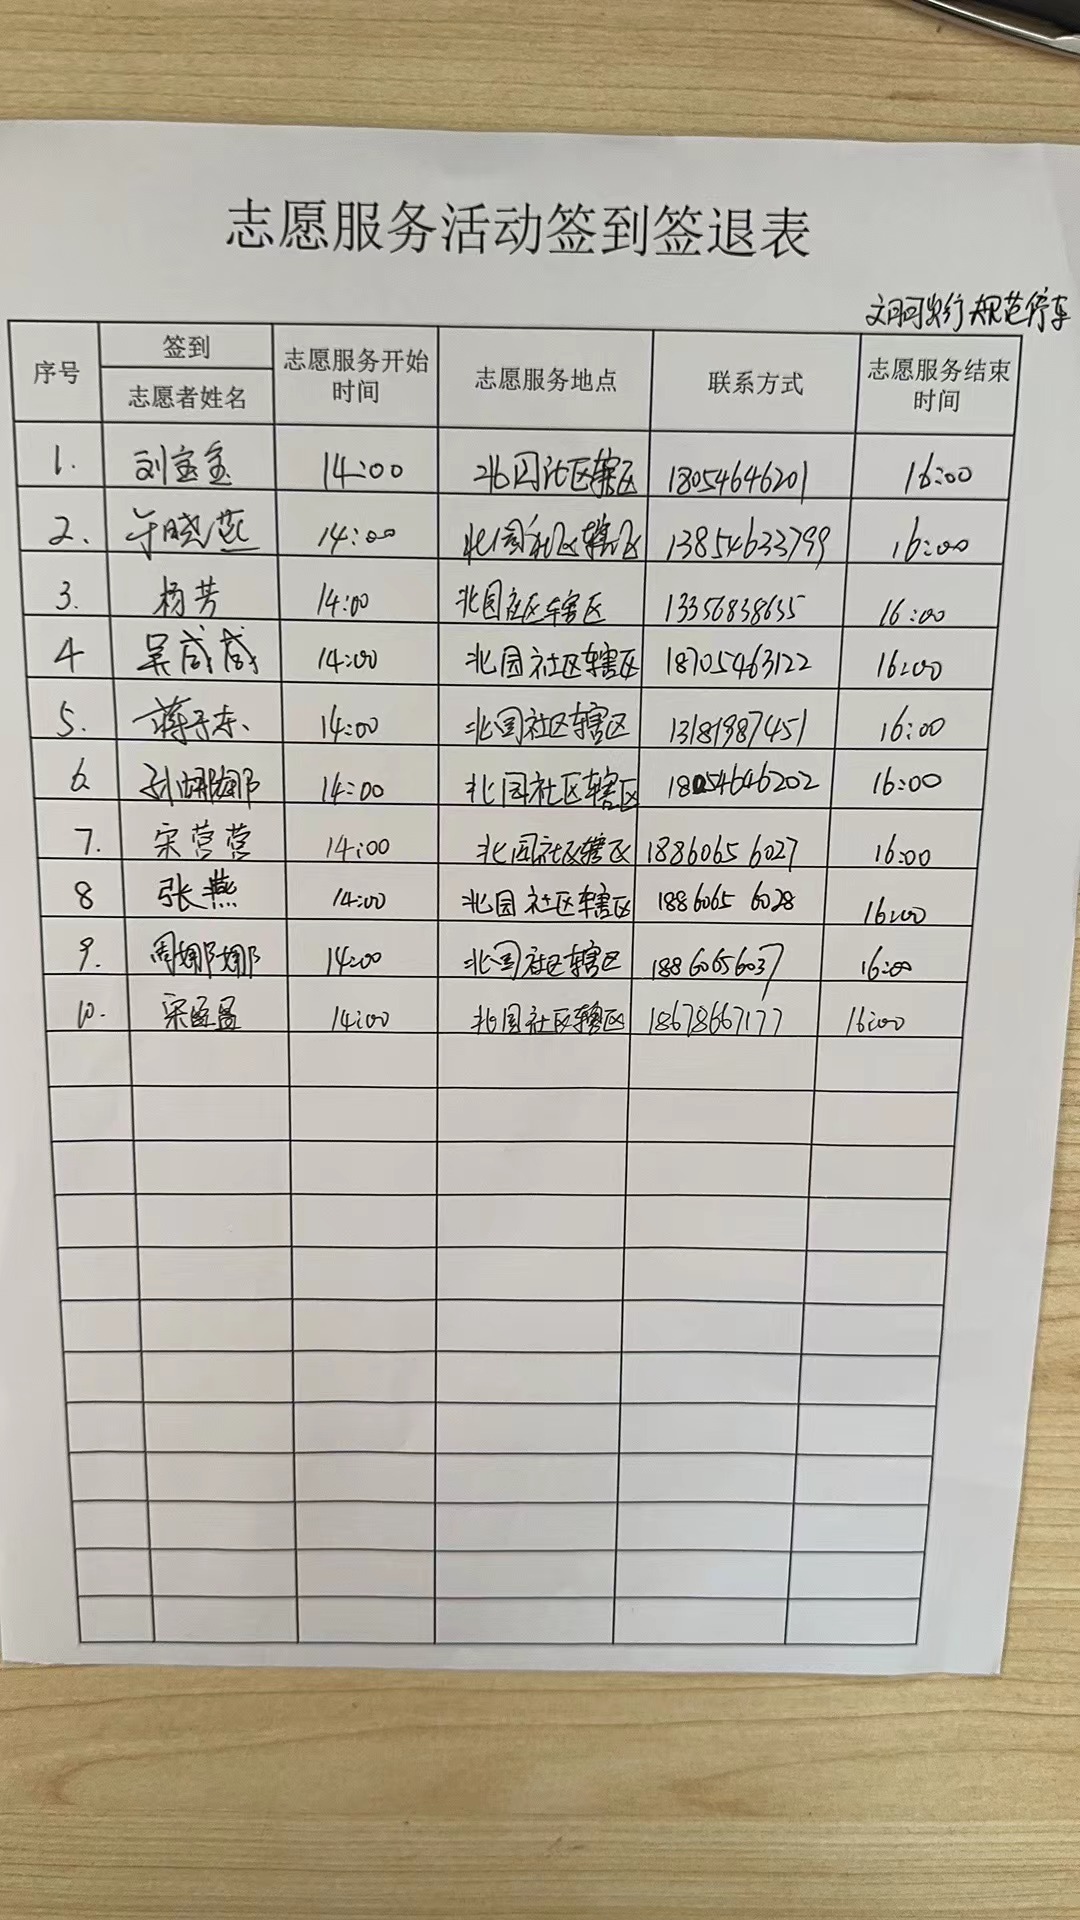 志愿服务活动签到签退表
文明出行 规范停车
序号 签到 志愿者姓名 志愿服务开始时间 志愿服务地点 联系方式 志愿服务结束时间
1. 刘宝宝 14:00 北园社区辖区 18054646201 16:00
2. 于晓燕 14:00 北园社区辖区 13854633799 16:00
3. 杨芳 14:00 北园社区辖区 13356838635 16:00
4 吴 14:00 北园社区辖区 18705463122 16:00
5. 蒋子东 14:00 北园社区辖区 13181987451 16:00
6. 孙娜娜 14:00 北园社区辖区 18054646202 16:00
7. 宋营营 14:00 北园社区辖区 18860656027 16:00
8 张燕 14:00 北园社区辖区 18860656028 16:00
9. 周娜娜 14:00 北园社区辖区 18860656037 16:00
10. 宋 14:00 北园社区辖区 18678667177 16:00